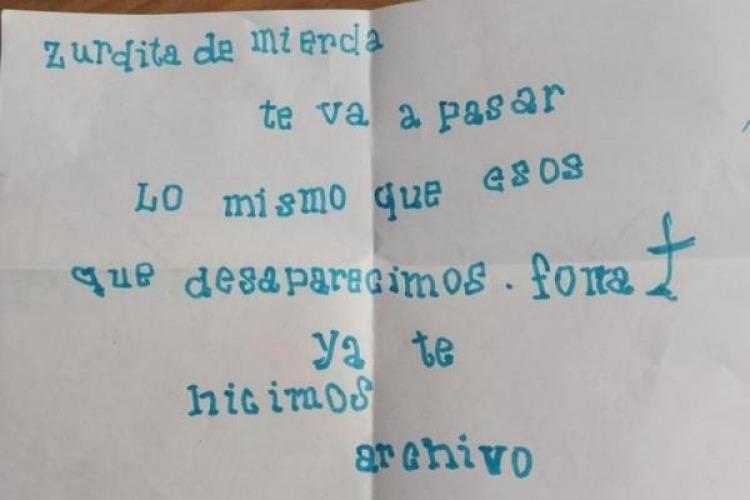 zurdita de mierda
te va a pasar
Lo mismo que esos
que desaparecimos. forra
ya te
hicimos
archivo